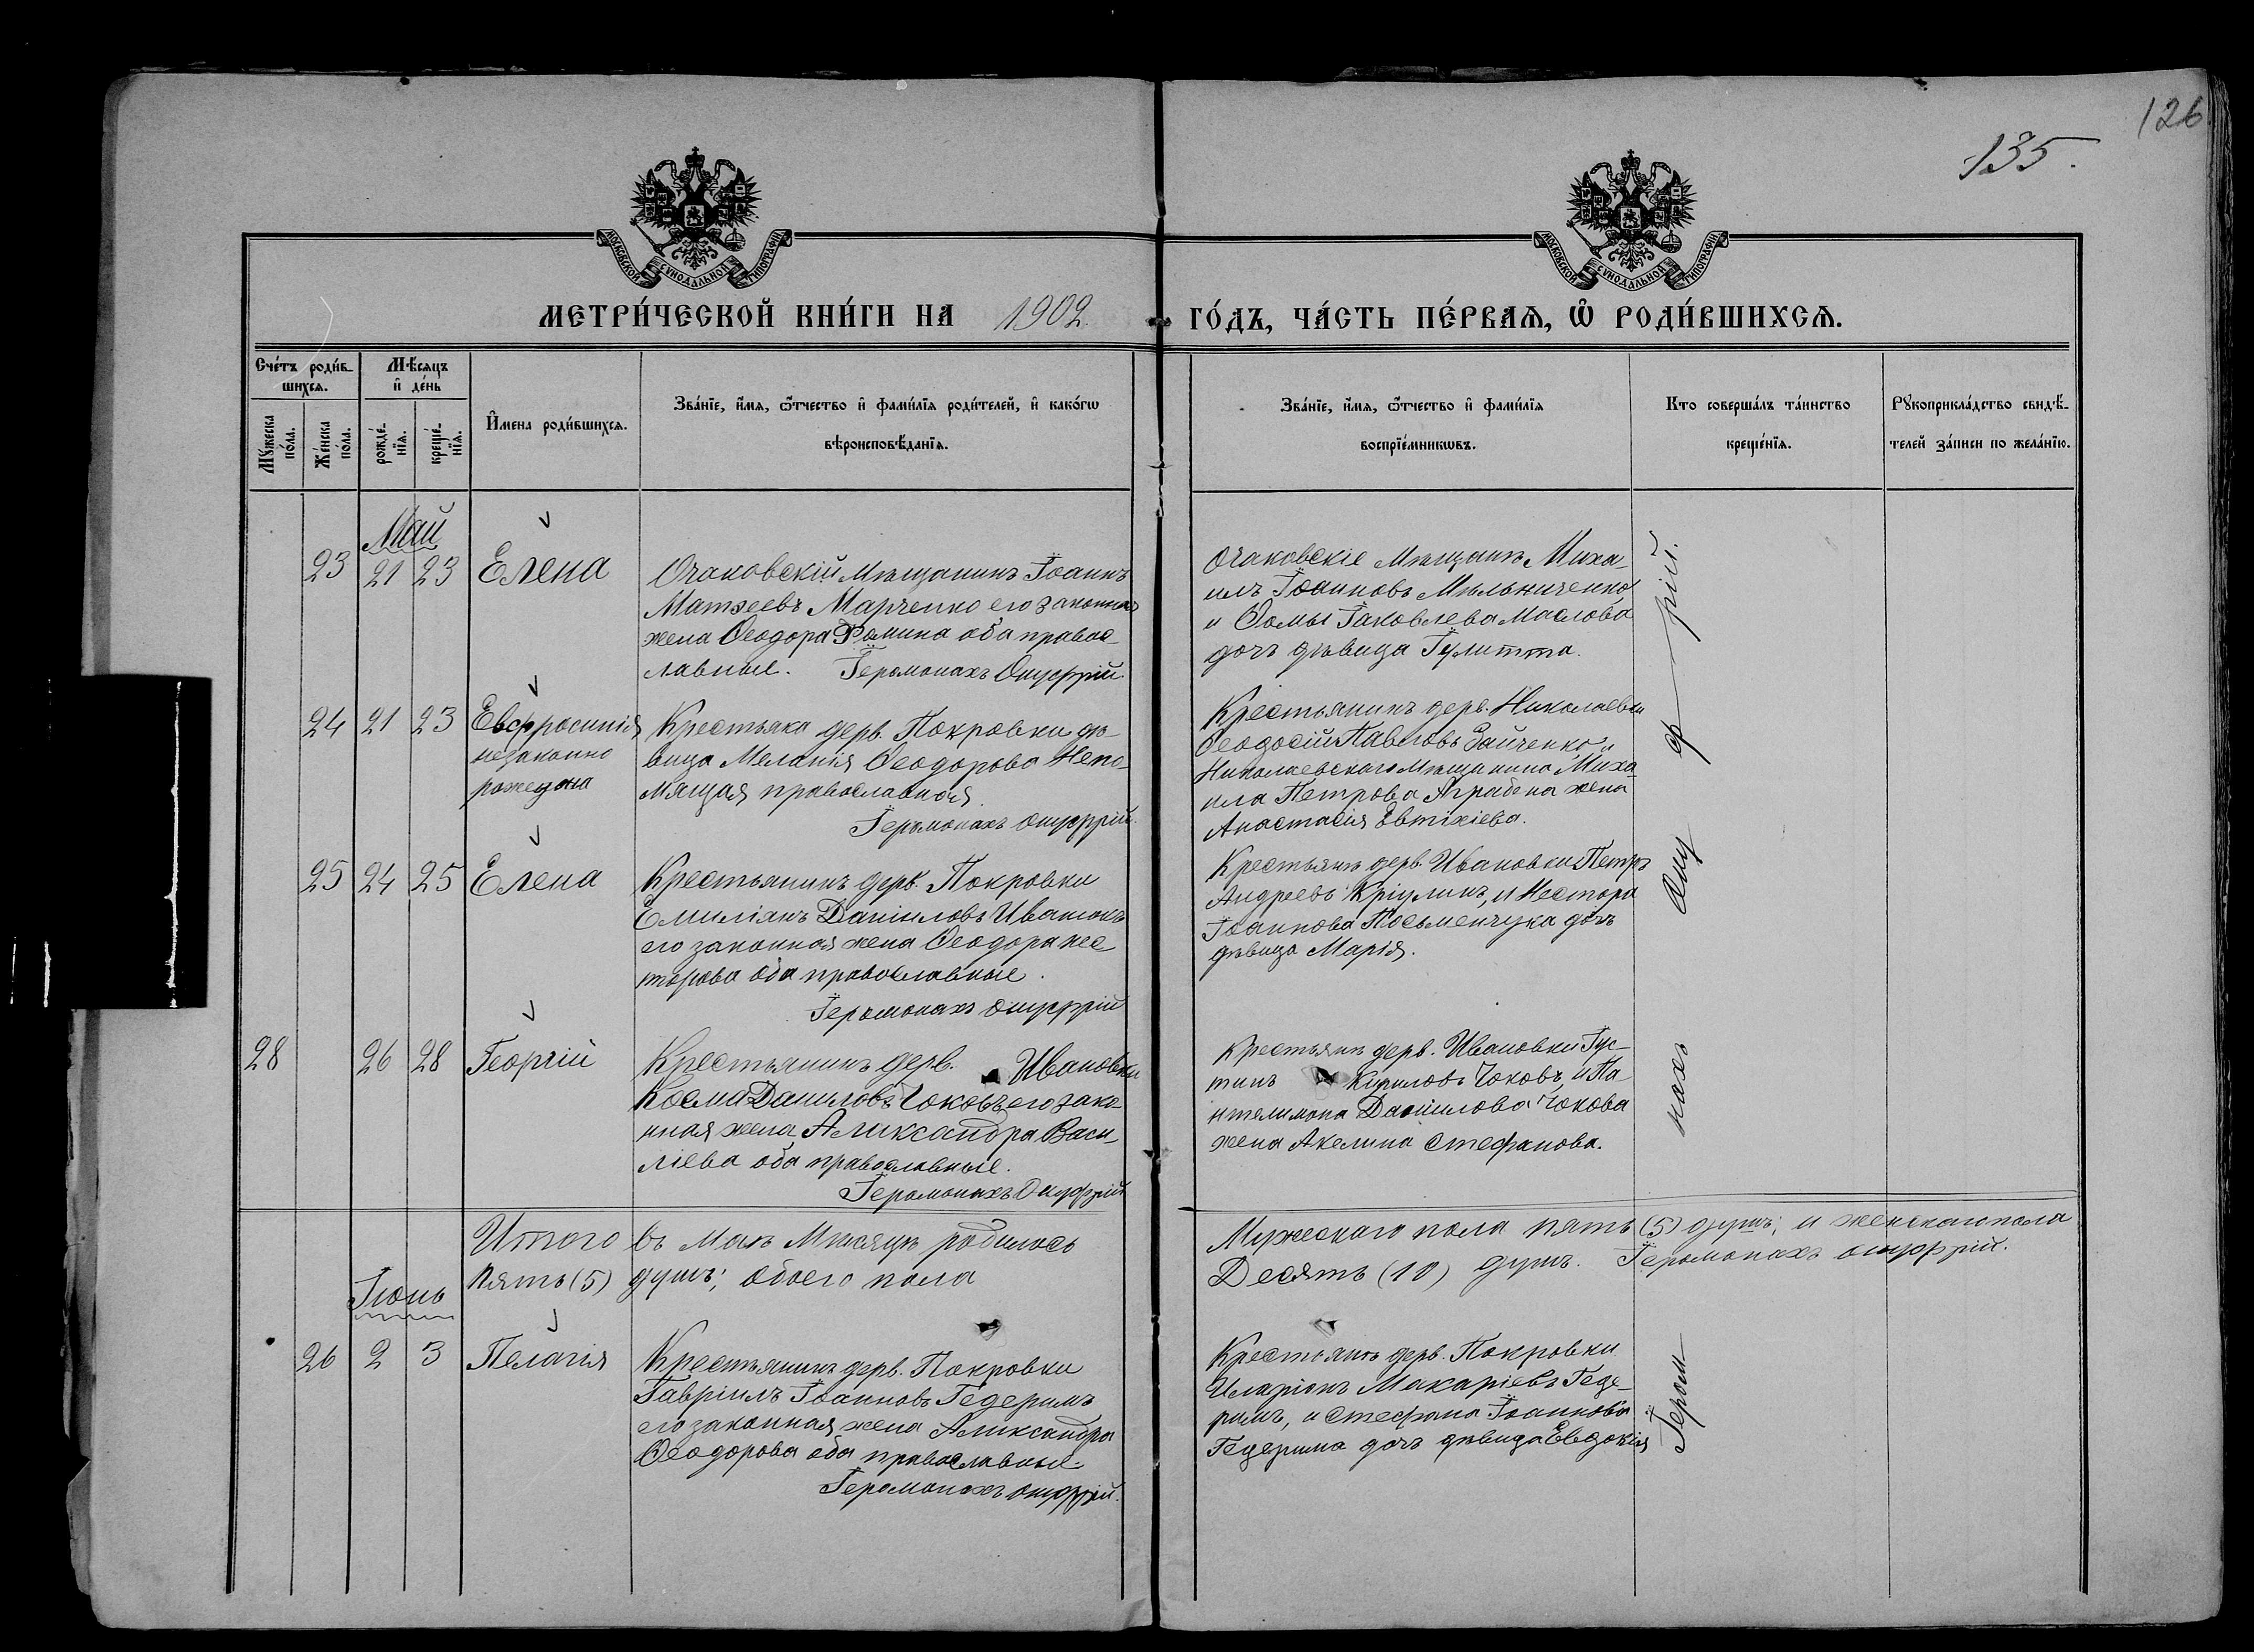 126
135.
МОСКОВСКОЙ СѴНОДАЛЬНОЙ ТИПОГРАФІИ
МОСКОВСКОЙ СѴНОДАЛЬНОЙ ТИПОГРАФІИ
МЕТРИ́ЧЕСКОЙ КНИ́ГИ НА 1902. ГО́ДЪ, ЧА́СТЬ ПЕ́РВАѦ, Ѡ҆ РОДИ́ВШИХСѦ.
Сче́тъ роди́в-
шихсѧ.
Мѣ́сѧцъ
и҆ де́нь
Мꙋ́жеска
по́ла.
Же́нска
по́ла.
рожде́-
нїѧ.
креще́-
нїѧ.
И҆мена роди́вшихсѧ.
Зва́нїе, и҆́мѧ, ѻ҆́тчество и҆ фами́лїѧ роди́телей, и҆ како́гѡ
вѣроисповѣ́данїѧ.
Зва́нїе, и҆́мѧ, ѻ҆́тчество и҆ фами́лїѧ
воспрїе́мникѡвъ.
Кто соверша́лъ та́инство
креще́нїѧ.
Рꙋкоприкла́дство свидѣ́-
телей за́писи по жела́нїю.
Май
23 21 23 Елена
Очаковскій мѣщанинъ Іоаннъ
Матѳеевъ Марченко его законная
жена Ѳеодора Фомина оба правос-
лавные. Іеромонахъ Онуфрій.
Очаковскіе мѣщане Миха-
илъ Іоанновъ Мельниченко
и Ѳомы Іаковлева Маслова
дочъ дѣвица Іулитта.
24 21 23 Евфросинія
незаконно
рождена
Крестьяка дерв. Покровки дѣ-
вица Меланія Ѳеодорова Непо-
мящая православная.
Іеромонахъ Онуфрій.
Крестьянинъ дерв. Николаевки
Ѳеодосій Павловъ Зайченко и
Николаевскаго мѣщанина Миха-
ила Петрова жена
Анастасія Евтихіева.
25 24 25 Елена
Крестьянинъ дерв. Покровки
Емиліанъ Даніиловъ Иванокъ
его законная жена Ѳеодора нес
торова оба православные.
Іеромонахъ Онуфрій
Крестьянъ дерв. Ивановки Петръ
Андреевъ Кріулинъ, и Нестора
Іоаннова Посьменчука дочъ
дѣвица Марія.
28 26 28 Георгій
Крестьянинъ дерв. Ивановки
Косма Даниловъ Чоковъ его зако-
нная жена Александра Васи-
ліева оба православные.
Іеромонахъ Онуфрій
Крестьянъ дерв. Ивановки Іус-
тинъ Кириловъ Чоковъ, и Па-
нтелимона Даніилова Чокова
жена Акелина Стефанова.
Итого въ маѣ мѣсяцѣ родилось Мужескаго пола пять (5) душъ; и женскаго пола
пять (5) душъ; обоего пола Десять (10) душъ. Іеромонахъ Онуфрій.
Іюнь
26 2 3 Пелагія
Крестьянинъ дерв. Покровки
Гавріилъ Іоанновъ Гедеримъ
его законная жена Александра
Ѳеодорова оба православные.
Іеромонахъ Онуфрій.
Крестьянъ дерв. Покровки
Иларіонъ Макаріевъ Геде-
римъ, и Стефана Іоаннова
Гедерима дочъ дѣвица Евдокія
Іером нахъ Ону ф рій.